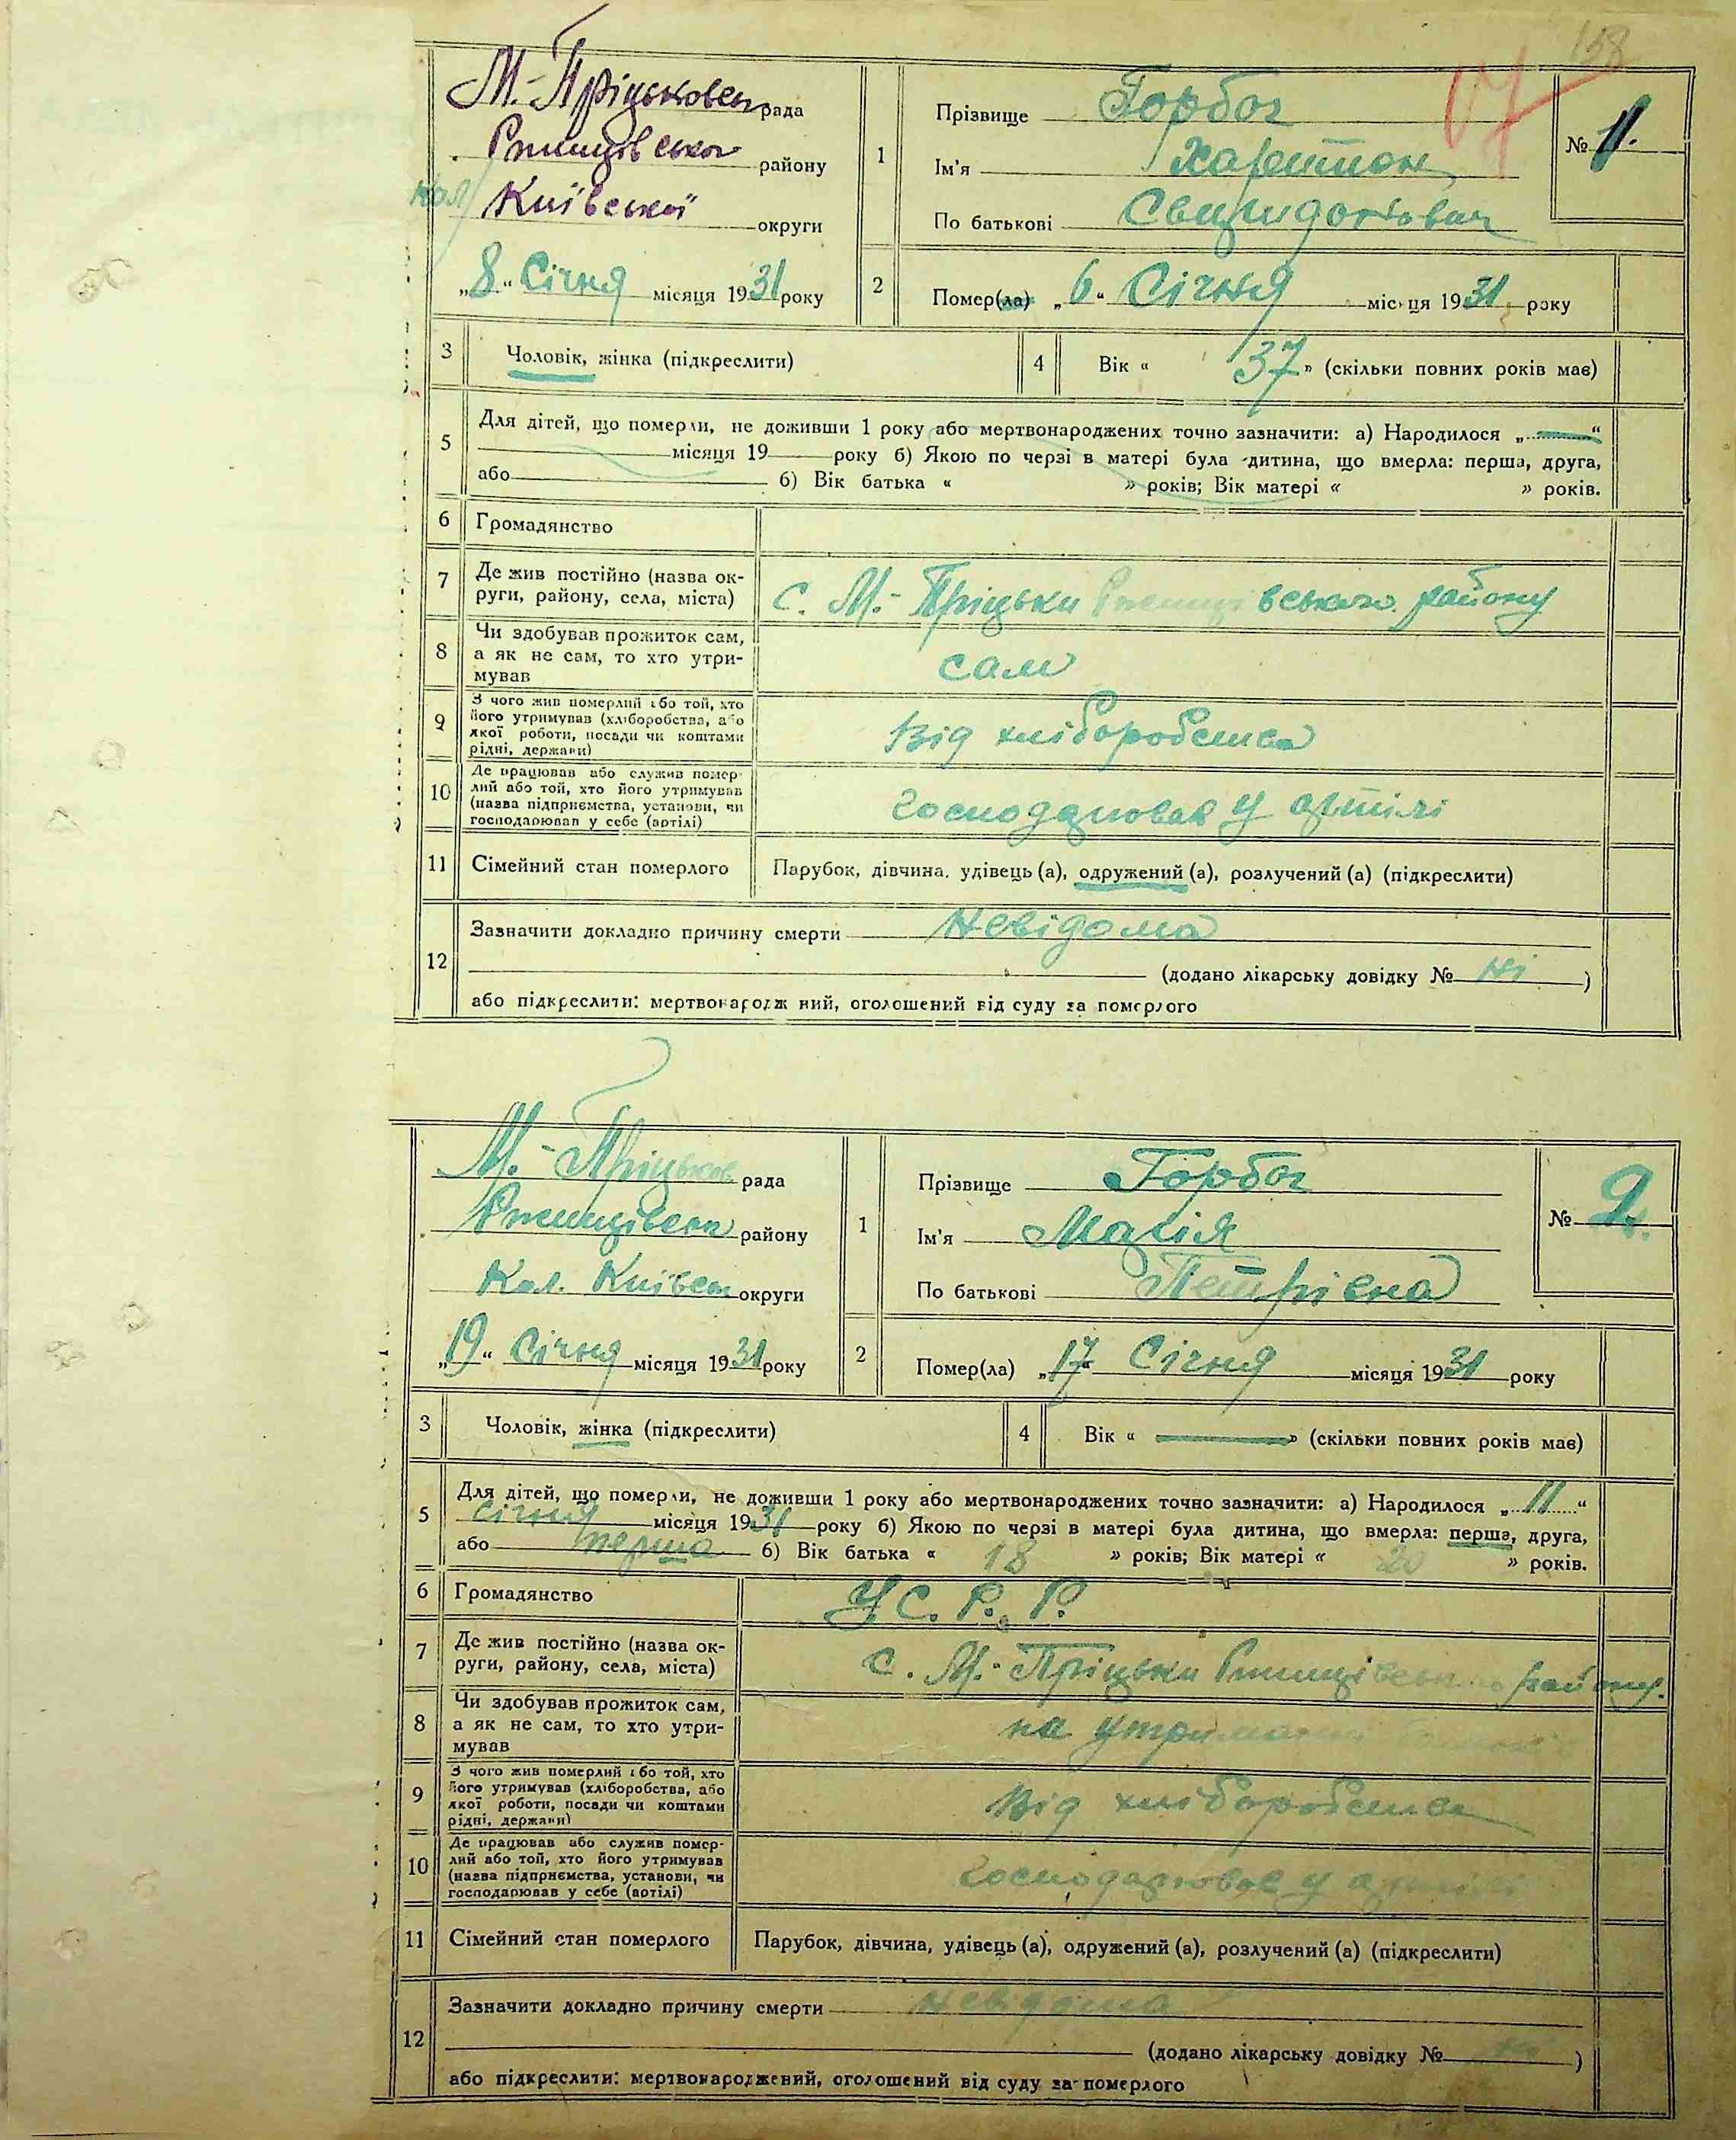 158
М.-Пріцьковськ рада
Ржищівської району
Кол. Київської округи
„8“ Січня місяця 1931 року
1
Прізвище Горбог
Ім'я Харитон
По батькові
№ 1.
2
Помер(ла) „6“ Січня місяця 1931 року
3
Чоловік, жінка (підкреслити)
4
Вік « 37 » (скільки повних років має)
5
Для дітей, що померли, не доживши 1 року або мертвонароджених точно зазначити: а) Народилося „ — “
місяця 19 року б) Якою по черзі в матері була дитина, що вмерла: перша, друга,
або б) Вік батька « » років; Вік матері « » років.
6
Громадянство
7
Де жив постійно (назва ок-
руги, району, села, міста)
с. М.-Пріцьки Ржищівського району
8
Чи здобував прожиток сам,
а як не сам, то хто утри-
мував
сам
9
З чого жив померлий або той, хто
його утримував (хліборобства, або
якої роботи, посади чи коштами
рідні, держави)
Від хліборобства
10
Де працював або служив помер-
лий або той, хто його утримував
(назва підприємства, установи, чи
господарював у себе (артілі)
Господарював у артілі
11
Сімейний стан померлого
Парубок, дівчина, удівець (а), одружений (а), розлучений (а) (підкреслити)
12
Зазначити докладно причину смерти Невідома
(додано лікарську довідку № ні )
або підкреслити: мертвонароджений, оголошений від суду за померлого
М.-Пріцьков рада
Ржищівськ району
Кол. Київськ округи
„19“ Січня місяця 1931 року
1
Прізвище Горбог
Ім'я Марія
По батькові Петрівна
№ 2.
2
Помер(ла) „17“ Січня місяця 1931 року
3
Чоловік, жінка (підкреслити)
4
Вік « — » (скільки повних років має)
5
Для дітей, що померли, не доживши 1 року або мертвонароджених точно зазначити: а) Народилося „11“
січня місяця 1931 року б) Якою по черзі в матері була дитина, що вмерла: перша, друга,
або перша б) Вік батька « 18 » років; Вік матері « 20 » років.
6
Громадянство
У.С.Р.Р.
7
Де жив постійно (назва ок-
руги, району, села, міста)
с. М.-Пріцьки Ржищівського району.
8
Чи здобував прожиток сам,
а як не сам, то хто утри-
мував
на утриманні
9
З чого жив померлий або той, хто
його утримував (хліборобства, або
якої роботи, посади чи коштами
рідні, держави)
Від хліборобства
10
Де працював або служив помер-
лий або той, хто його утримував
(назва підприємства, установи, чи
господарював у себе (артілі)
Господарював у артілі
11
Сімейний стан померлого
Парубок, дівчина, удівець (а), одружений (а), розлучений (а) (підкреслити)
12
Зазначити докладно причину смерти невідома
(додано лікарську довідку № )
або підкреслити: мертвонароджений, оголошений від суду за померлого